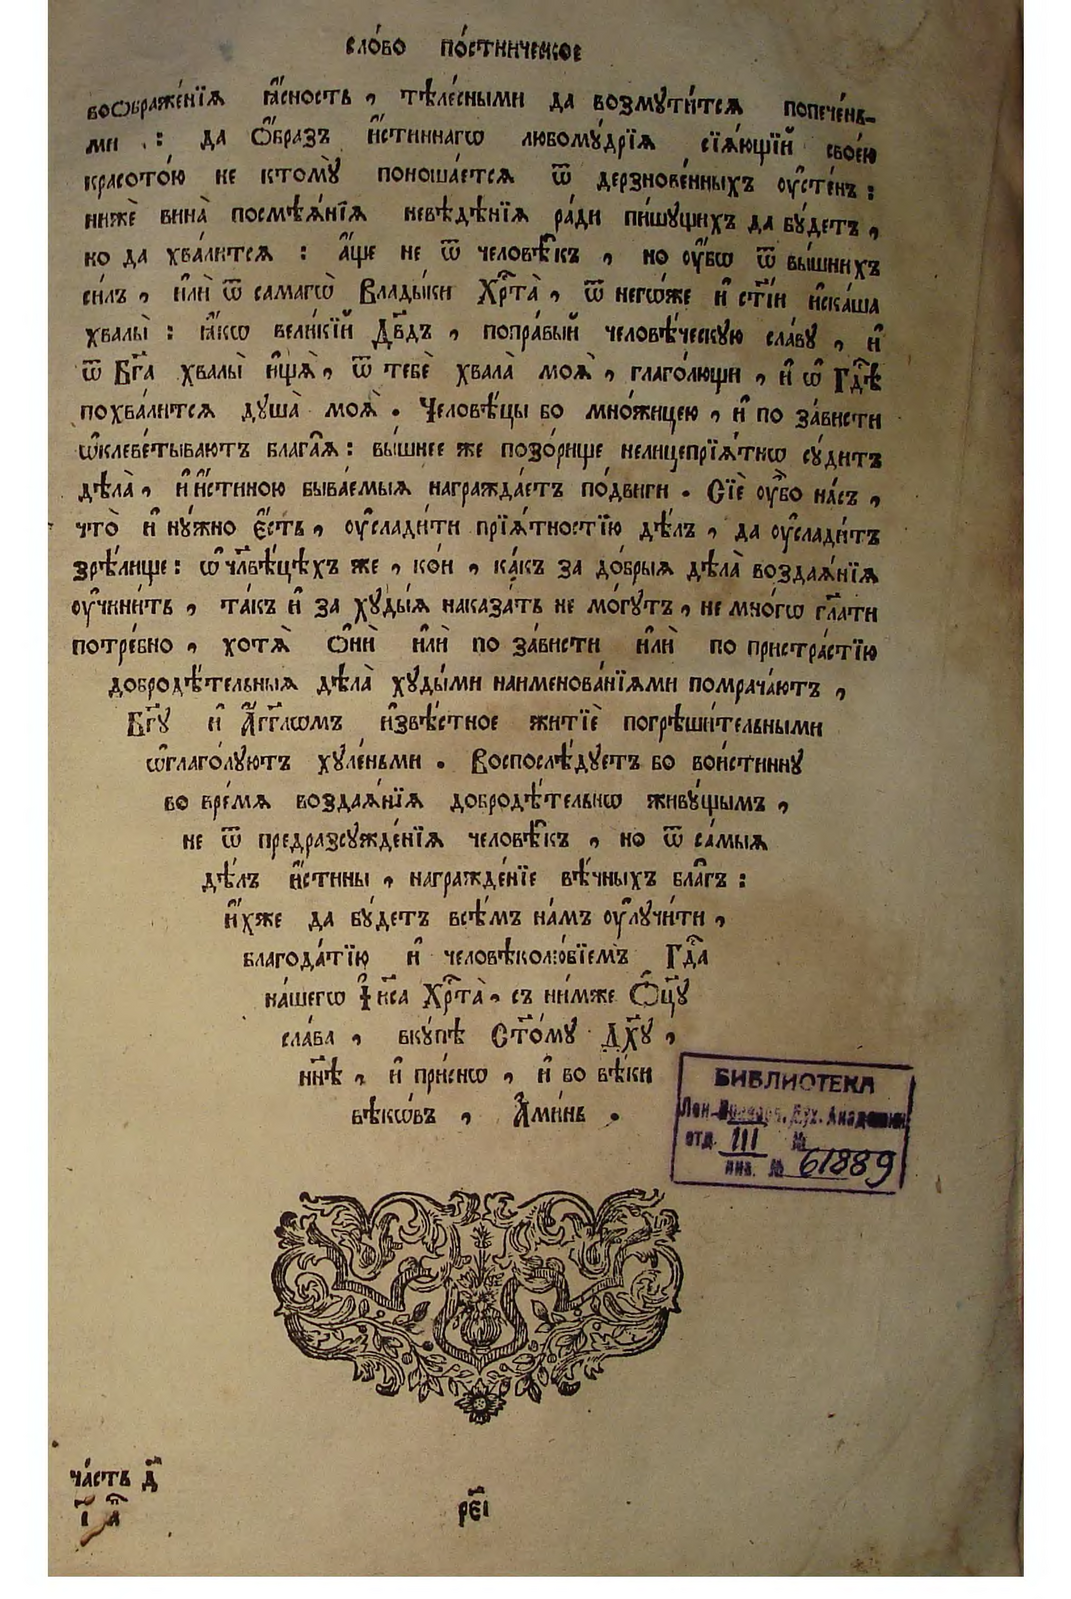 сло́во по́стническое
воѡбраже́нїѧ ꙗ҆́сность , тѣле́сными да возмꙋти́тсѧ попече́нь-
ми : да ѻ҆́бразъ и҆́стиннагѡ любомꙋ́дрїѧ сїѧ́ющїй свое́ю
красото́ю не ктомꙋ̀ поноша́етсѧ ѿ дерзнове́нныхъ ᲂу҆сте́нъ :
нижѐ вина̀ посмѣѧ́нїѧ невѣ́дѣнїѧ ра́ди пи́шꙋщихъ да бꙋ́детъ ,
но да хва́литсѧ : а҆́ще не ѿ человѣ̑къ , но ᲂу҆́бѡ ѿ вы́шнихъ
си́лъ , и҆лѝ ѿ самагѡ̀ Влады́ки Хрⷭ҇та̀ , ѿ негѡ́же и҆ ст҃і́и и҆ска́ша
хвалы̀ : ꙗ҆́кѡ вели́кїй Дв҃дъ , попра́вый человѣ́ческꙋю сла́вꙋ , и҆
ѿ Бг҃а хвалы̀ и҆щѧ̀ , ѿ тебѐ хвала̀ моѧ̀ , глаго́лющи , и҆ ѡ҆ Гдⷭ҇ѣ
похва́литсѧ дꙋша̀ моѧ̀ . Человѣ́цы бо мно́жицею , и҆ по за́висти
ѡ҆клеве́тываютъ блага̑ѧ : вы́шнее же позо́рище нелицепрїѧ́тнѡ сꙋ́дитъ
дѣла̀ , и҆ и҆́стиною быва́емыѧ награжда́етъ по́двиги . Сїѐ ᲂу҆́бо на́съ ,
что̀ и҆ нꙋ́жно є҆́сть , ᲂу҆слади́ти прїѧ́тностїю дѣ́лъ , да ᲂу҆слади́тъ
зрѣ́лище : ѡ҆ чл҃вѣ́цѣхъ же , ко́и , ка́къ за до́брыѧ дѣла̀ воздаѧ́нїѧ
ᲂу҆чини́ть , та́къ и҆ за хꙋды́ѧ наказа́ть не мо́гꙋтъ , не мно́гѡ гл҃ати
потре́бно , хотѧ̀ ѻ҆нѝ и҆лѝ по за́висти и҆лѝ по пристра́стїю
добродѣ́тельныѧ дѣла̀ хꙋды́ми наименова́нїѧми помрача́ютъ ,
Бг҃ꙋ и҆ А҆́гг҃лѡмъ и҆звѣ́стное житїѐ погрѣши́тельными
ѡ҆глаго́лꙋютъ хꙋле́ньми . Воспослѣ́дꙋетъ бо вои́стиннꙋ
во вре́мѧ воздаѧ́нїѧ добродѣ́тельнѡ живꙋ́щымъ ,
не ѿ предразсꙋжде́нїѧ человѣ̑къ , но ѿ са́мыѧ
дѣ́лъ и҆́стины , награжде́нїе вѣ́чныхъ бла̑гъ :
и҆́хже да бꙋ́детъ всѣ́мъ на́мъ ᲂу҆лꙋчи́ти ,
благода́тїю и҆ человѣколю́бїемъ Гдⷭ҇а
на́шегѡ І҆и҃са Хрⷭ҇та̀ , съ ни́мже Ѻ҆ц҃ꙋ̀
сла́ва , вкꙋ́пѣ Ст҃о́мꙋ Дх҃ꙋ ,
нн҃ѣ , и҆ при́снѡ , и҆ во вѣ́ки
вѣкѡ́въ , А҆ми́нь .
БИБЛИОТЕКА
Лен. Духовн. Академии
отд. III №
инв. № 61889
ча́сть д҃
рє҃і